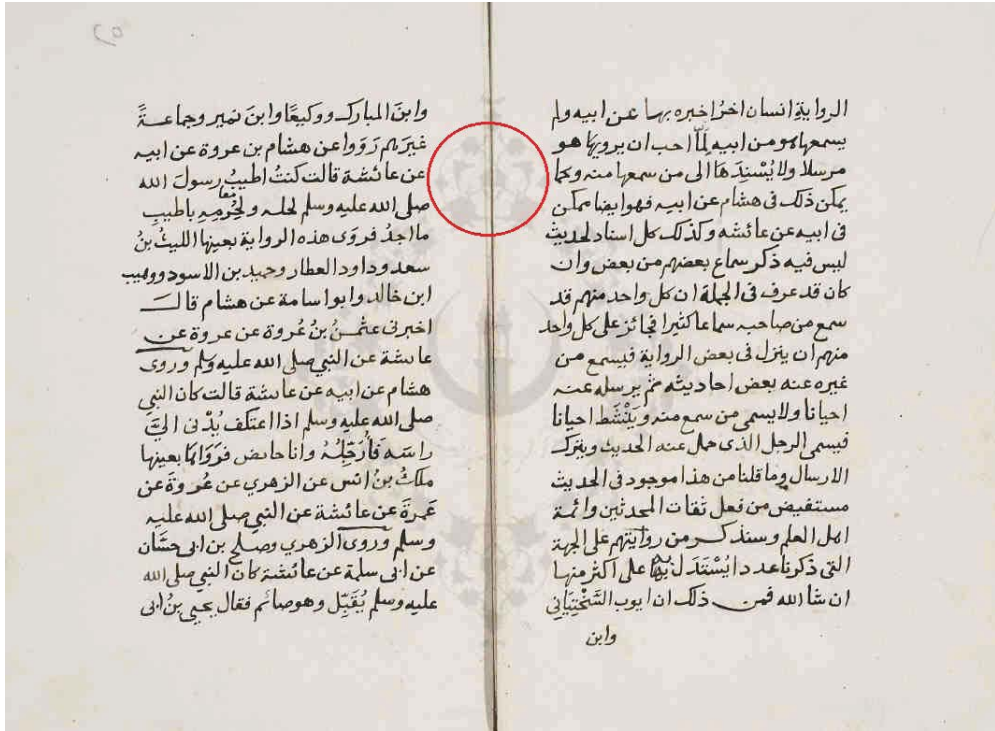 الرواية انسان اخرُ اخبره بها عن ابيه ولم
يسمعها هو من ابيه لَمّا احب ان يرويها هو
مرسلا ولا يُسْنِدَهَا الى من سمعها منه وكما
يمكن ذلك فى هشام عن ابيه فهو ايضا ممكن
فى ابيه عن عائشه وكذلك كل اسناد لحديث
ليس فيه ذكر سماع بعضهم من بعض وان
كان قد عرف فى الجملة ان كل واحد منهم قد
سمع من صاحبه سماعا كثيرا فجائز على كل واحد
منهم ان ينزل فى بعض الرواية فيسمع من
غيره عنه بعض احاديثه ثم يرسله عنه
احيانا ولا يسمى من سمع منه ويَنْشَط احيانا
فيسمى الرجل الذى حمل عنه الحديث ويترك
الارسال وما قلنا من هذا موجود فى الحديث
مستفيض من فعل ثقات المحدثين وائمة
اهل العلم وسنذكر من روايتهم على الجهة
التى ذكرنا عددا يُسْتَدَل بها على اكثر منها
ان شا الله فمن ذلك ان ايوب السَّخْتِيَانِي
وابن
٢٥
وابنَ المبارك ووكيعًا وابنَ نمير وجماعةً
غيرَهم رَوَوا عن هشام بن عروة عن ابيه
عن عائشة قالت كنتُ اطيبُ رسولَ الله
صلى الله عليه وسلم لحله ولحُرْمِهِ باطيبِ
ما اجدُ فروَى هذه الرواية بعينها الليثُ بنُ
سعد وداود العطار وحميد بن الاسود ووهيب
ابن خالد وابو اسامة عن هشام قال
اخبرنى عثمنُ بنُ عُروة عن عروة عن
عائشة عن النبي صلى الله عليه وسلم وروى
هشام عن ابيه عن عائشة قالت كان النبي
صلى الله عليه وسلم اذا اعتكف يُدْنى اليَّ
راسَه فَأُرَجِّلُهُ وانا حايض فرَوَاها بعينها
ملكُ بنُ انس عن الزهري عن عُروةَ عن
عَمرةَ عن عائشة عن النبي صلى الله عليه
وسلم وروى الزهري وصلح بن ابى حسَّان
عن ابى سلمة عن عائشة كان النبي صلى الله
عليه وسلم يُقَبِّل وهو صائم فقال يحيى بنُ ابى